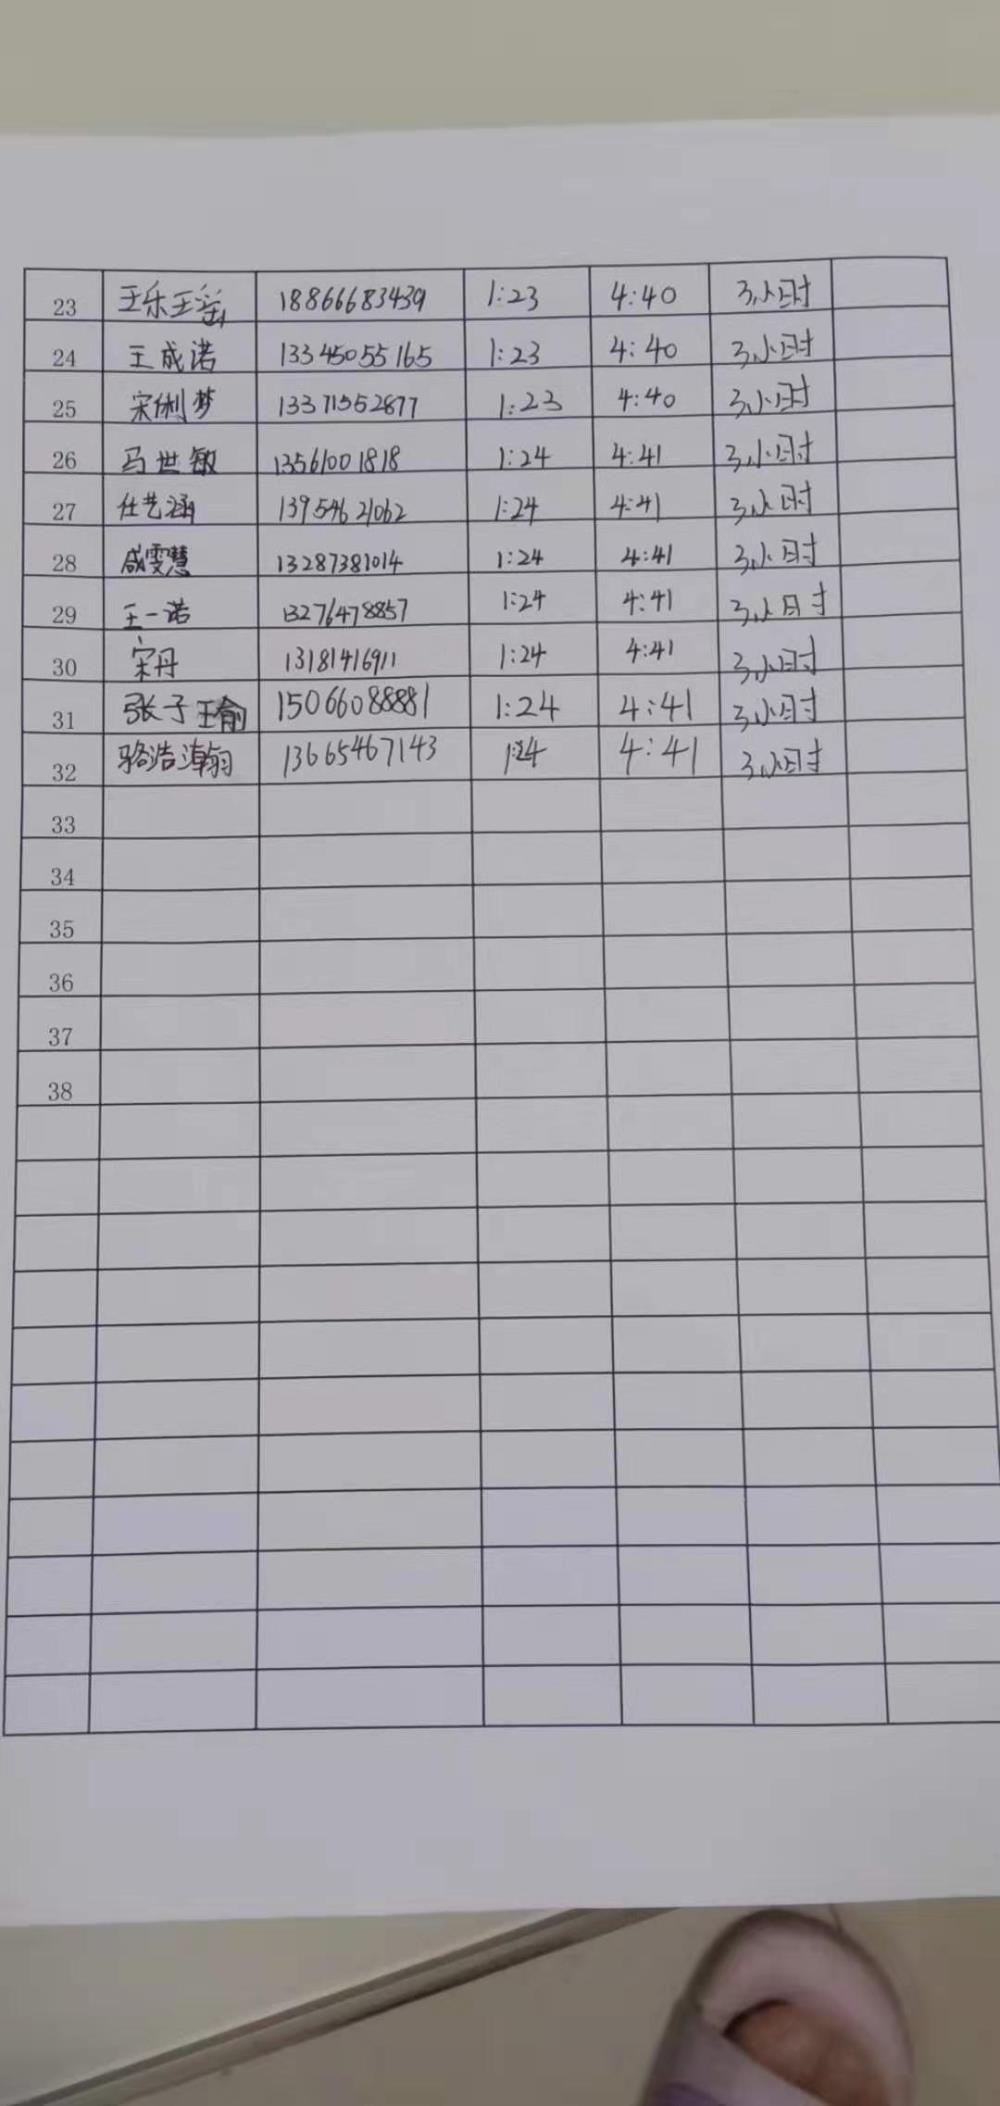 23 王乐瑶 18866683439 1:23 4:40 3小时
24 王成诺 13345055165 1:23 4:40 3小时
25 宋俐梦 13371552877 1:23 4:40 3小时
26 马世敏 13561001818 1:24 4:41 3小时
27 任艺涵 13954621062 1:24 4:41 3小时
28 咸雯慧 13287381014 1:24 4:41 3小时
29 王一诺 13276478857 1:24 4:41 3小时
30 宋丹 13181416911 1:24 4:41 3小时
31 张子瑜 15066088881 1:24 4:41 3小时
32 骆浩瀚 13665467143 1:24 4:41 3小时
33
34
35
36
37
38